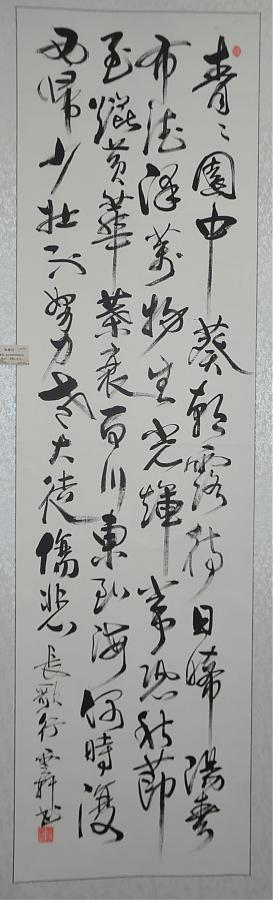 青〻園中葵朝露待日晞陽春
布德澤萬物生光輝常恐秋節
至焜黃華葉衰百川東到海何時復
西歸少壯不努力老大徒傷悲
長歌行